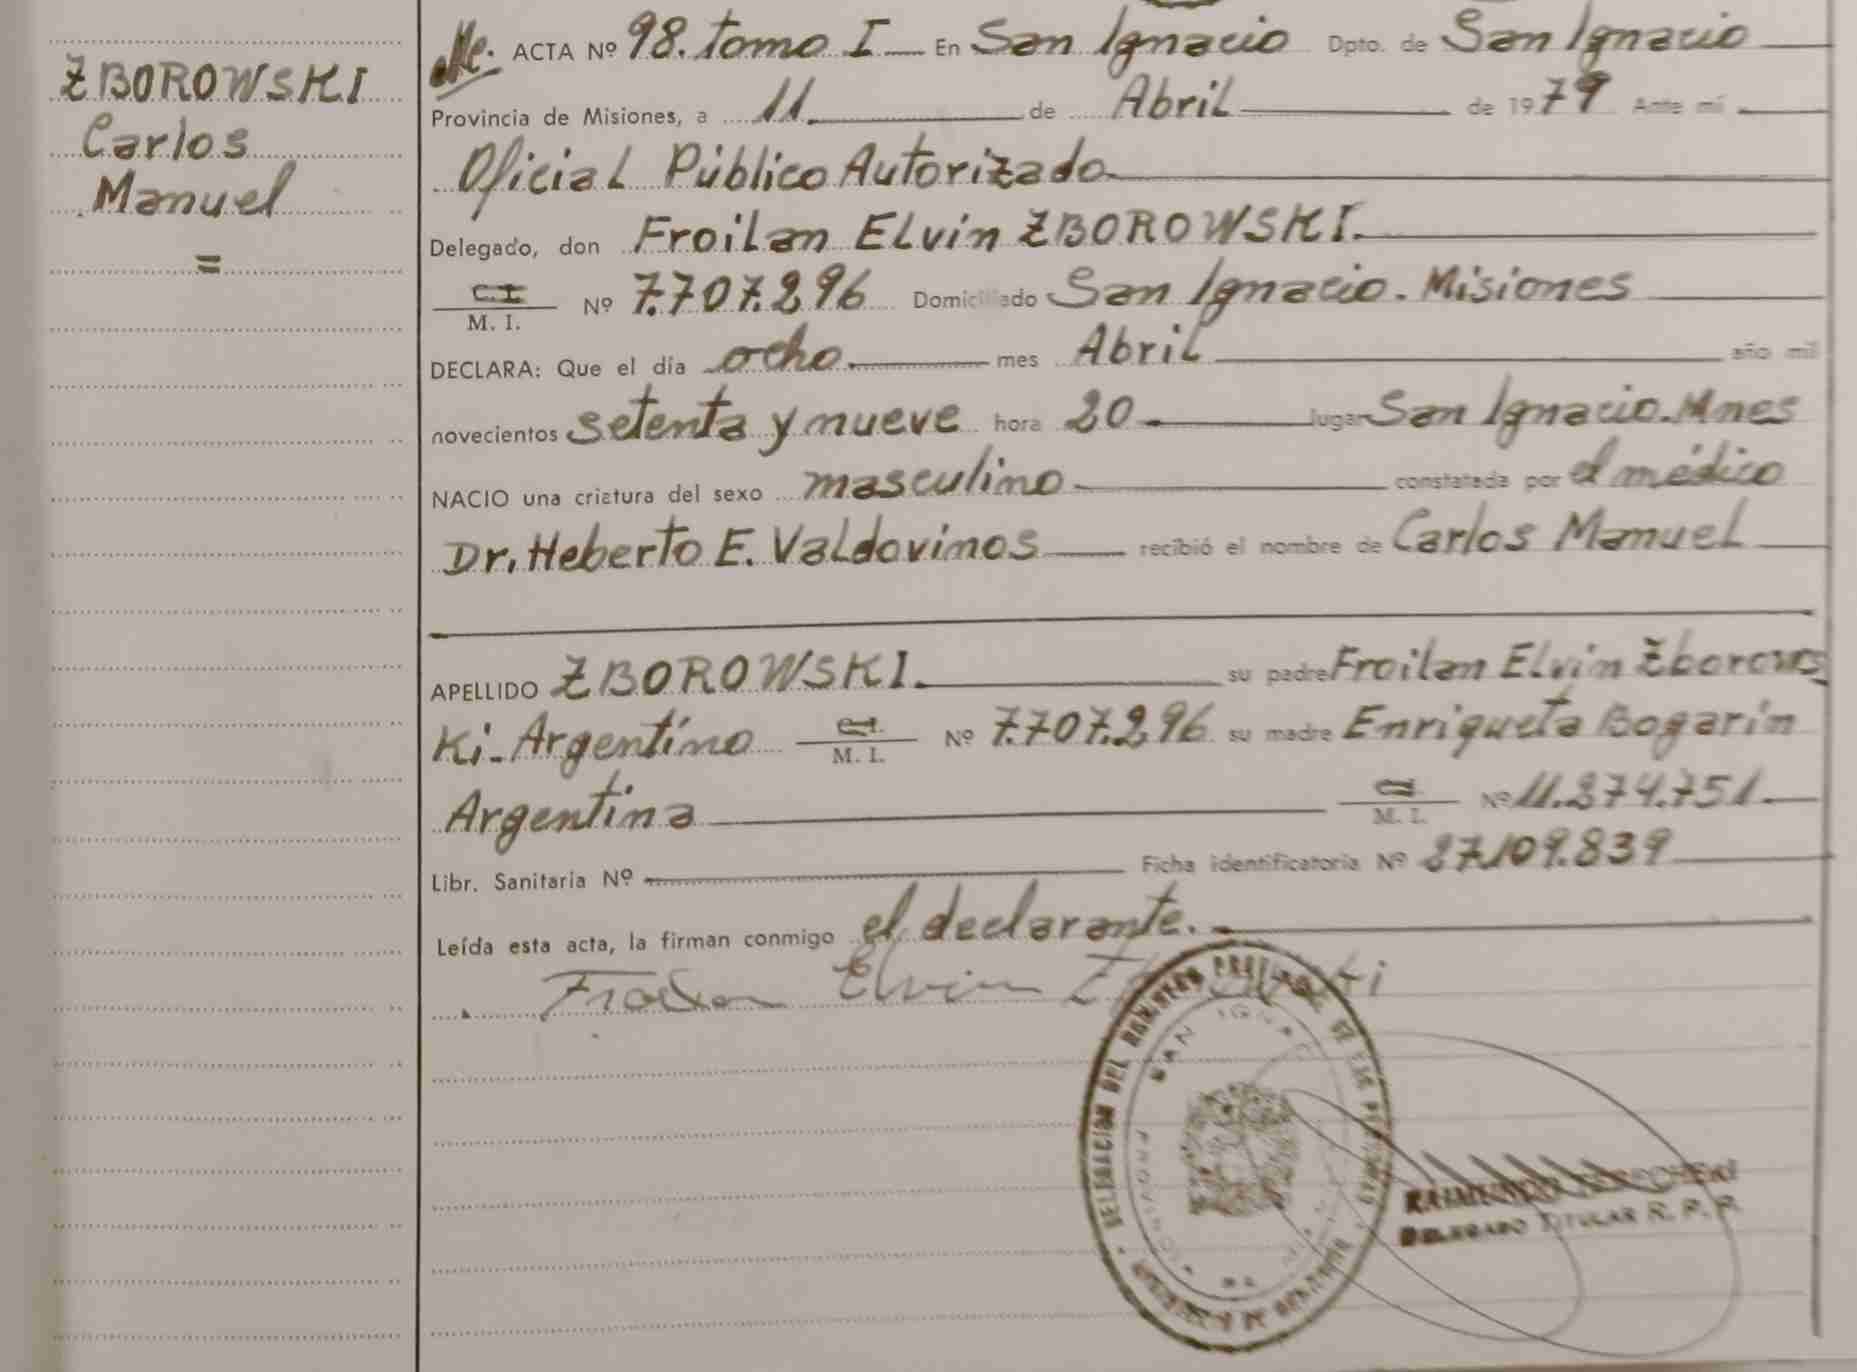 ZBOROWSKI
Carlos
Manuel
=
ACTA Nº 98. tomo I En San Ignacio Dpto. de San Ignacio
Provincia de Misiones, a 11 de Abril de 1979 Ante mí
Oficial Público Autorizado
Delegado, don Froilan Elvin ZBOROWSKI.
C.I. M. I. Nº 7.707.296 Domiciliado San Ignacio. Misiones
DECLARA: Que el día ocho mes Abril año mil
novecientos setenta y nueve hora 20 lugar San Ignacio. Mnes
NACIO una criatura del sexo masculino constatada por el médico
Dr. Heberto E. Valdovinos recibió el nombre de Carlos Manuel
APELLIDO ZBOROWSKI. su padre Froilan Elvin Zborows
Ki- Argentino C.I. M. I. Nº 7.707.296 su madre Enriqueta Bogarín
Argentina C.I. M. I. Nº 11.274.751
Libr. Sanitaria Nº Ficha identificatoria Nº 27.109.839
Leída esta acta, la firman conmigo el declarante.
Froilan Elvin
DELEGACION DEL REGISTRO PROVINCIAL DE LAS PERSONAS
SAN IGNACIO
DELEGADO TITULAR R. P. P.